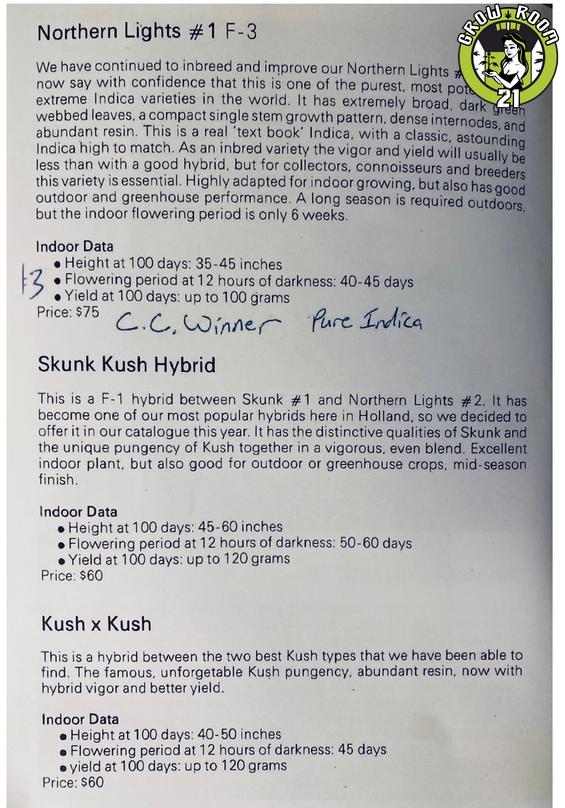 GROW ROOM
21
Northern Lights #1 F-3
We have continued to inbreed and improve our Northern Lights #
now say with confidence that this is one of the purest, most pote
extreme Indica varieties in the world. It has extremely broad, dark green
webbed leaves, a compact single stem growth pattern, dense internodes, and
abundant resin. This is a real 'text book' Indica, with a classic, astounding
Indica high to match. As an inbred variety the vigor and yield will usually be
less than with a good hybrid, but for collectors, connoisseurs and breeders
this variety is essential. Highly adapted for indoor growing, but also has good
outdoor and greenhouse performance. A long season is required outdoors,
but the indoor flowering period is only 6 weeks.
Indoor Data
• Height at 100 days: 35-45 inches
• Flowering period at 12 hours of darkness: 40-45 days
• Yield at 100 days: up to 100 grams
Price: $75
C.C. Winner Pure Indica
Skunk Kush Hybrid
This is a F-1 hybrid between Skunk #1 and Northern Lights #2. It has
become one of our most popular hybrids here in Holland, so we decided to
offer it in our catalogue this year. It has the distinctive qualities of Skunk and
the unique pungency of Kush together in a vigorous, even blend. Excellent
indoor plant, but also good for outdoor or greenhouse crops, mid-season
finish.
Indoor Data
• Height at 100 days: 45-60 inches
• Flowering period at 12 hours of darkness: 50-60 days
• Yield at 100 days: up to 120 grams
Price: $60
Kush x Kush
This is a hybrid between the two best Kush types that we have been able to
find. The famous, unforgetable Kush pungency, abundant resin, now with
hybrid vigor and better yield.
Indoor Data
• Height at 100 days: 40-50 inches
• Flowering period at 12 hours of darkness: 45 days
• yield at 100 days: up to 120 grams
Price: $60